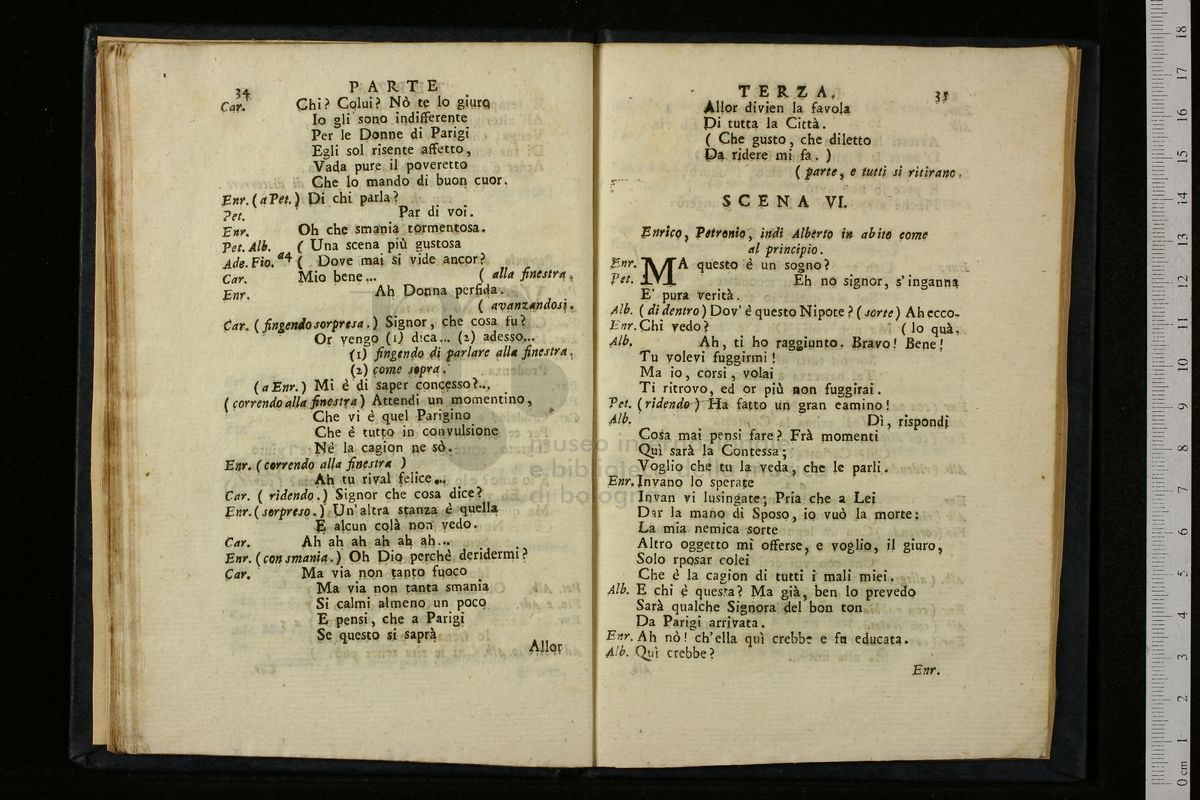 34 PARTE
Car. Chi? Colui? Nò te lo giuro
Io gli sono indifferente
Per le Donne di Parigi
Egli sol risente affetto,
Vada pure il poveretto
Che lo mando di buon cuor.
Enr. (a Pet.) Di chi parla?
Pet. Par di voi.
Enr. Oh che smania tormentosa.
Pet. Alb. ( Una scena più gustosa
Ade. Fio. a4 ( Dove mai si vide ancor?
Car. Mio bene... ( alla finestra.
Enr. Ah Donna perfida.
( avanzandosi.
Car. (fingendo sorpresa.) Signor, che cosa fu?
Or vengo (1) dica... (2) adesso...
(1) fingendo di parlare alla finestra.
(2) come sopra.
(a Enr.) Mi è di saper concesso?...
(correndo alla finestra) Attendi un momentino,
Che vi è quel Parigino
Che è tutto in convulsione
Nè la cagion ne sò.
Enr. (correndo alla finestra )
Ah tu rival felice...
Car. ( ridendo.) Signor che cosa dice?
Enr. (sorpreso.) Un'altra stanza è quella
E alcun colà non vedo.
Car. Ah ah ah ah ah ah...
Enr. (con smania.) Oh Dio perchè deridermi?
Car. Ma via non tanto fuoco
Ma via non tanta smania
Si calmi almeno un poco
E pensi, che a Parigi
Se questo si saprà
Allor
TERZA. 35
Allor divien la favola
Di tutta la Città.
( Che gusto, che diletto
Da ridere mi fa. )
( parte, e tutti si ritirano.
SCENA VI.
Enrico, Petronio, indi Alberto in abito come
al principio.
Enr. MA questo è un sogno?
Pet. Eh no signor, s'inganna
E' pura verità.
Alb. (di dentro) Dov' è questo Nipote? (sorte) Ah ecco-
Enr. Chi vedo? ( lo quà.
Alb. Ah, ti ho raggiunto. Bravo! Bene!
Tu volevi fuggirmi!
Ma io, corsi, volai
Ti ritrovo, ed or più non fuggirai.
Pet. (ridendo) Ha fatto un gran camino!
Alb. Dì, rispondi
Cosa mai pensi fare? Frà momenti
Quì sarà la Contessa;
Voglio che tu la veda, che le parli.
Enr. Invano lo sperate
Invan vi lusingate; Pria che a Lei
Dar la mano di Sposo, io vuò la morte:
La mia nemica sorte
Altro oggetto mi offerse, e voglio, il giuro,
Solo rposar colei
Che è la cagion di tutti i mali miei.
Alb. E chi è questa? Ma già, ben lo prevedo
Sarà qualche Signora del bon ton
Da Parigi arrivata.
Enr. Ah nò! ch'ella quì crebbe e fu educata.
Alb. Quì crebbe?
Enr.